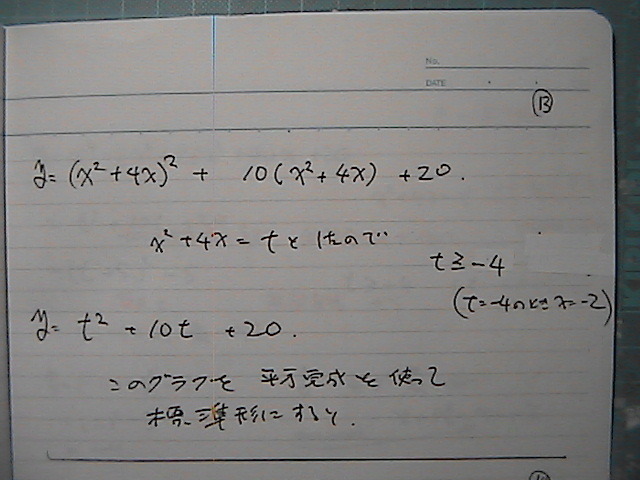 No.
DATE
⑬
y=(x²+4x)²+ 10(x²+4x) +20.
x²+4x=tとしたので
t≧-4
(t=-4のときx=-2)
y= t²+10t +20.
このグラフを 平方完成を使って
標準形にすると.